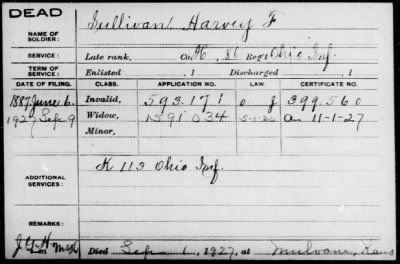 DEAD
NAME OF SOLDIER: Sullivan, Harvey F
SERVICE: Late rank, Co. H, 86 Reg't Ohio Inf.
TERM OF SERVICE: Enlisted , 1 Discharged , 1
DATE OF FILING. CLASS. APPLICATION NO. LAW. CERTIFICATE NO.
1887 June 6. Invalid, 593.171 399.560
1927 Sep 9 Widow, 1591034 5-1-20 11-1-27
Minor,
ADDITIONAL SERVICES: K 113 Ohio Inf.
REMARKS:
Died Sep 1, 1927, at Mulvane, Kans